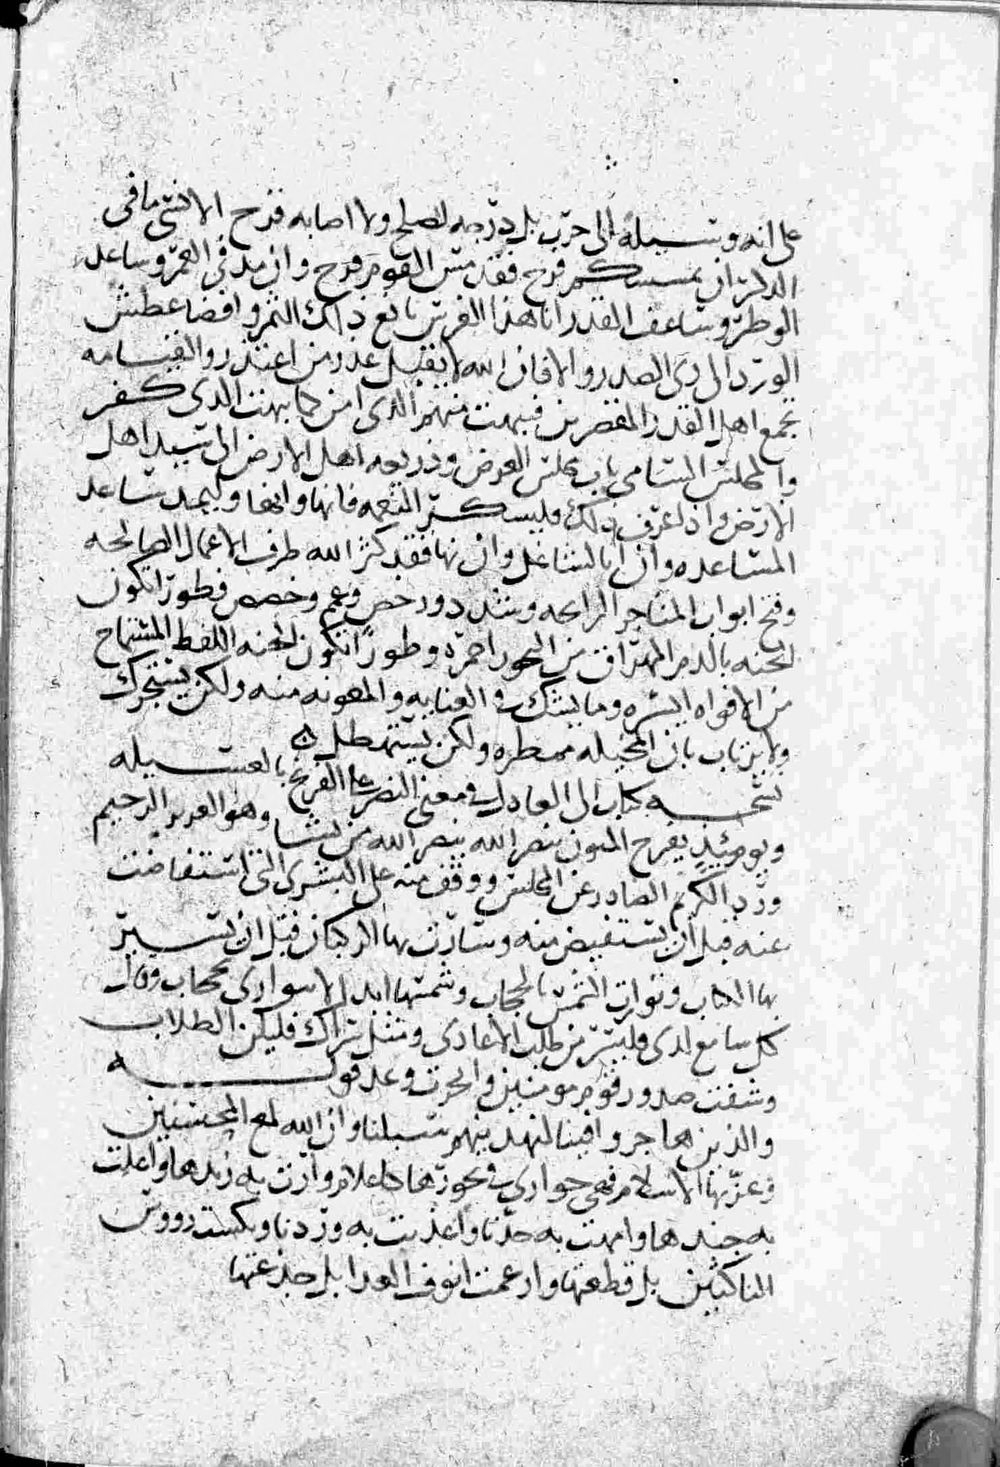 على انه وسيله الى حرب بل درجه لصلح ولا اصابه قرح الا نسى ما فى
الذكر ان يمسسكم قرح فقد مس القوم قرح وان مد فى العمر وساعد
الوطر وساعف القدر اتا هذا الغرس يانع ذلك الثمر وافضا عطش
الورد الى رى الصدر والا فان الله لا يقبل عذر من اعتذر والقيامه
تجمع اهل القدر المقصرين فيبهت منهم الذى امن كما بهت الذى كفر
والمجلس السامى باب مجلس العرض وذريعه اهل الارض الى سيد اهل
الارض واذا عرف ذلك فليستكثر النعمه فانها واليحمد ساعد
المساعده وان ابا لشاغل وان نها فقد كثر الله طرف الاعمال الصالحه
وفتح ابواب المتاجر الرابحه وشدد ورخص وعم وخصص فطورا تكون
الجنه بالدم المهراق من النحور احمره وطورا تكون الجنه اللفظ المستماح
من الافواه ايسره وما يشك فى العنايه والمعونه منه ولكن يستحرك
ولا يرتاب بان المخيله ممطره ولكن يستهطل
نسخه كتاب الى العادل فى معنى النصر على الفرنج بالعسيله
ويومئذ يفرح المومنون بنصر الله ينصر الله من يشا وهو العزيز الرحيم
ورد الكريم الصادر عن المجلس ووقف منه على البشرى التى استفاضت
عنه قبل ان تستفيض منه وسارت بها الركبان قبل ان تسير
بها الكتاب وتوارت الشمس بالحجاب وشمسها ابدا لا توارى بحجاب وقال
كل سامع لدى فليسر من طلب الاعادى ومثل تراك فليكن الطلاب
وشفت صدور قوم مومنين وانجزت وعد قوله
والذين جاهدوا فينا لنهدينهم سبلنا وان الله لمع المحسنين
وعز بها الاسلام فهى جوارى فى بحورها كالاعلام وارت به زندها واعلت
به جندها وامهت به حدنا واعذبت به وردنا ونكست رووس
الناكثين بل قطعتها وارغمت انوف العدا بل جدعتها